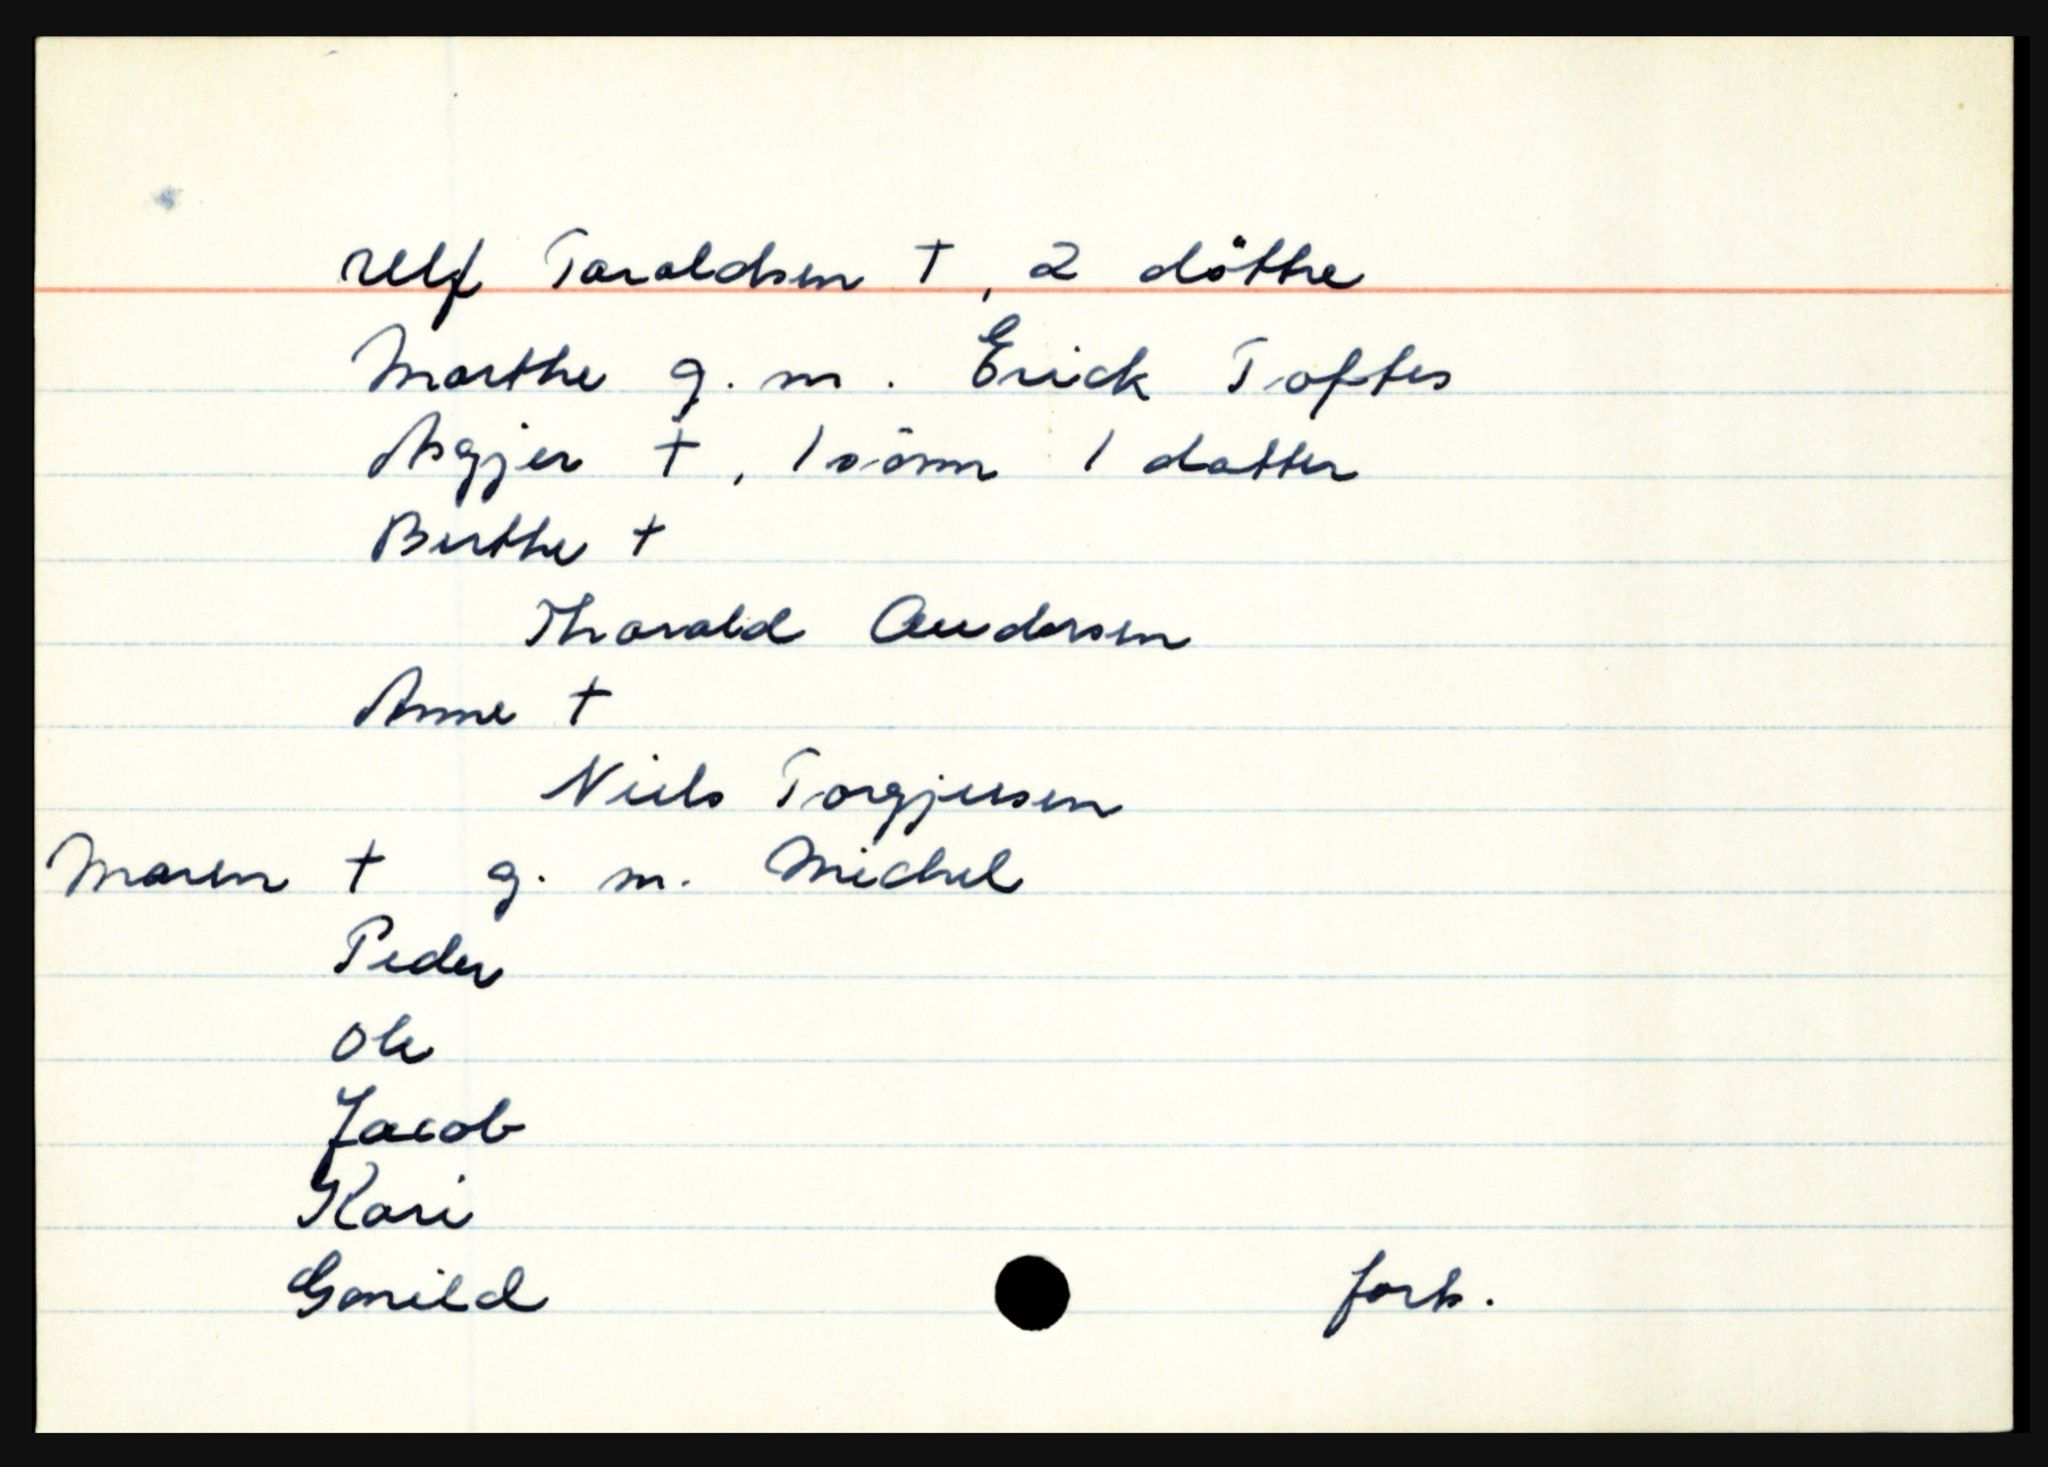 Ulf Taraldsen †, 2 döttre
Marthe g. m. Erick Toftes
Asgjer †, 1 sönn 1 datter
Berthe †
Tharald Audersen
Anne †
Niels Torgjusen
Maren † g. m. Michel
Peder
Ole
Jacob
Kari
Gonild forts.